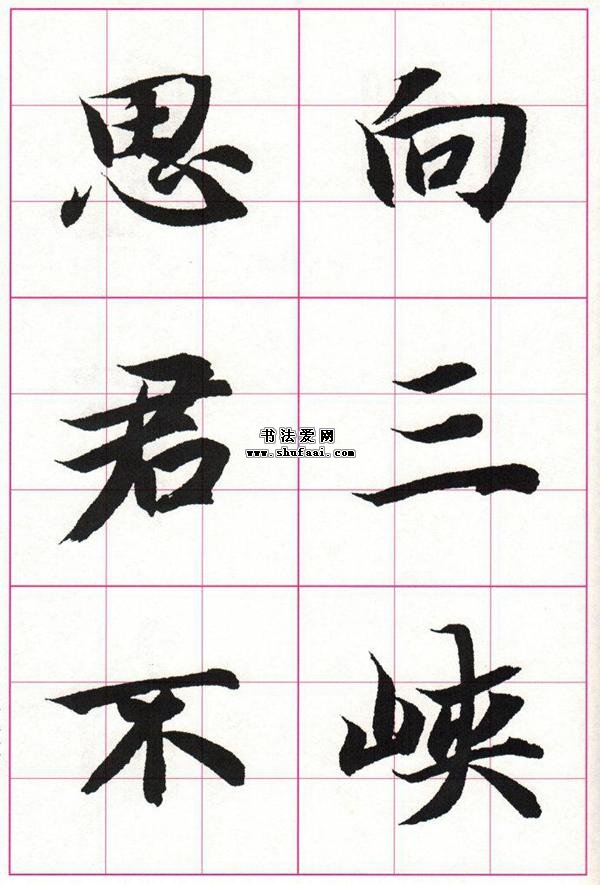 向三峡
思君不
书法爱网
www.shufaai.com